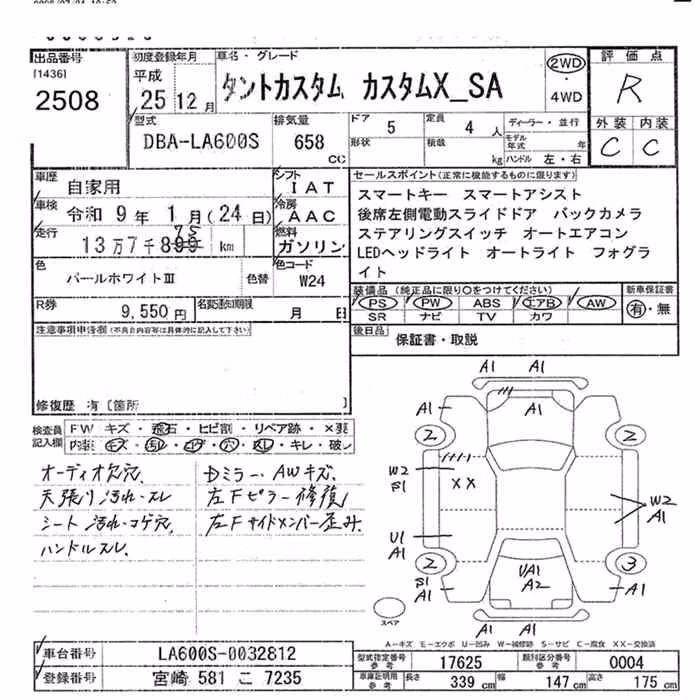 出品番号
[1436]
2508
初度登録年月
平成
25 12 月
車名・グレード
タントカスタム カスタムX_SA
2WD
・
4WD
評価点
R
外装 内装
C C
型式
DBA-LA600S
排気量
658
CC
ドア 5
形状
定員 4 人
積載 kg
ディーラー・並行
モデル年式 年
ハンドル 左・右
車歴 自家用
車検 令和 9 年 1 月(24 日)
走行 13万7千899 75 km
シフト
IAT
冷房
AAC
燃料
ガソリン
色 パールホワイトIII 色替
色コード
W24
R券 9,550 円
名変通知期限 月 日
セールスポイント(正常に機能するものに限ります)
スマートキー スマートアシスト
後席左側電動スライドドア バックカメラ
ステアリングスイッチ オートエアコン
LEDヘッドライト オートライト フォグラ
イト
装備品(純正品に限り○をつけてください)
新車保証書
PS PW ABS エアB AW
SR ナビ TV カワ
有・無
後日品 保証書・取説
注意事項申告欄(不具合内容等は具体的に記入して下さい)
修復歴 有〔箇所 〕
検査員記入欄
FW キズ・飛石・ヒビ割・リペア跡・×要
内装 キズ・汚れ・コゲ・穴・スレ・キレ・破レ
オーディオ欠穴、
天張り汚れ・スレ
シート汚れ・コゲ穴、
ハンドルスレ、
Dミラー、AWキズ、
左Fピラー修復、
左Fサイドメンバー歪み、
A1 A1
A1 A1 A1
2 2
W2
S1
XX
W2
A1
U1
A1
2 3
S1
A1
UA1
A2
A1
A1 A1
スペア
A-キズ E-エクボ U-凹み W-補修跡 S-サビ C-腐食 XX-交換済
車台番号 LA600S-0032812
登録番号 宮崎 581 こ 7235
型式指定番号 参考 17625
類別区分番号 参考 0004
車庫証明用 参考 長さ 339 cm 幅 147 cm 高さ 175 cm